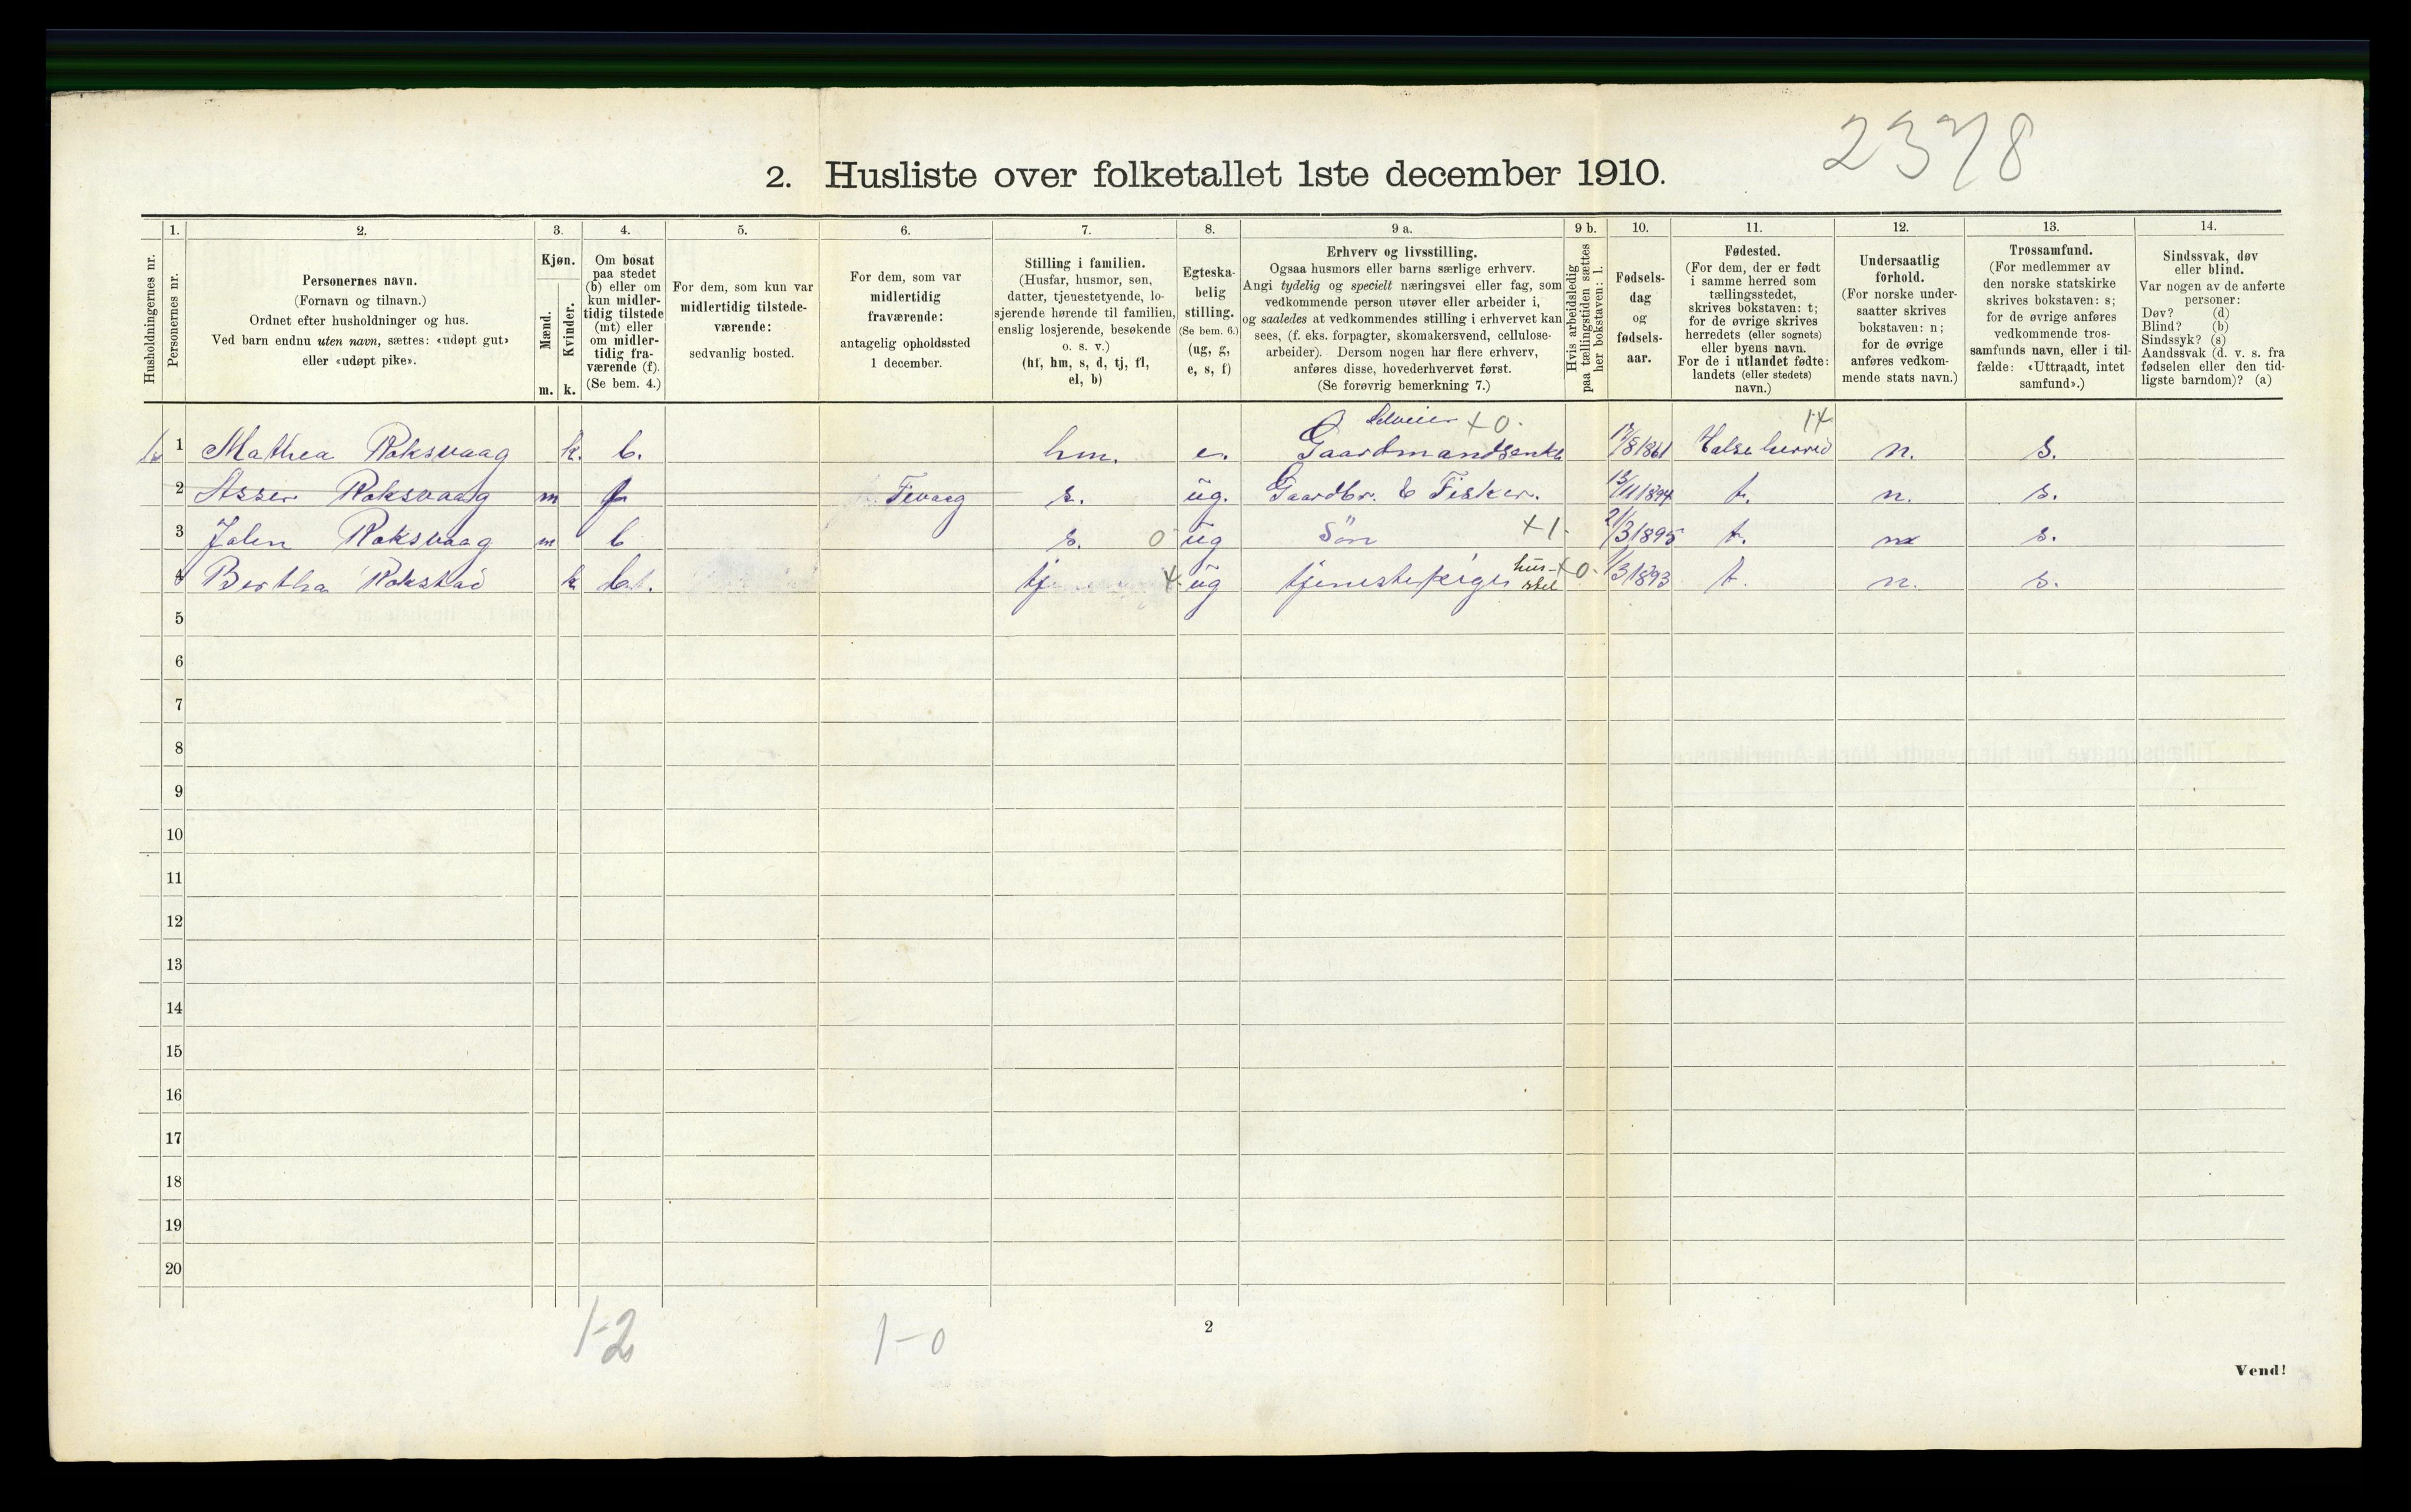 2378
2. Husliste over folketallet 1ste december 1910.
1. 2. 3. 4. 5. 6. 7. 8. 9 a. 9 b. 10. 11. 12. 13. 14.
Husholdningernes nr.
Personernes nr.
Personernes navn.
(Fornavn og tilnavn.)
Ordnet efter husholdninger og hus.
Ved barn endnu uten navn, sættes: «udøpt gut»
eller «udøpt pike».
Kjøn.
Mænd.
Kvinder.
m. k.
Om bosat
paa stedet
(b) eller om
kun midler-
tidig tilstede
(mt) eller
om midler-
tidig fra-
værende (f).
(Se bem. 4.)
For dem, som kun var
midlertidig tilstede-
værende:
sedvanlig bosted.
For dem, som var
midlertidig
fraværende:
antagelig opholdssted
1 december.
Stilling i familien.
(Husfar, husmor, søn,
datter, tjenestetyende, lo-
sjerende hørende til familien,
enslig losjerende, besøkende
o. s. v.)
(hf, hm, s, d, tj, fl,
el, b)
Egteska-
belig
stilling.
(Se bem. 6.)
(ug, g,
e, s, f)
Erhverv og livsstilling.
Ogsaa husmors eller barns særlige erhverv.
Angi tydelig og specielt næringsvei eller fag, som
vedkommende person utøver eller arbeider i,
og saaledes at vedkommendes stilling i erhvervet kan
sees, (f. eks. forpagter, skomakersvend, cellulose-
arbeider). Dersom nogen har flere erhverv,
anføres disse, hovederhvervet først.
(Se forøvrig bemerkning 7.)
Hvis arbeidsledig
paa tællingstiden sættes
her bokstaven: l.
Fødsels-
dag
og
fødsels-
aar.
Fødested.
(For dem, der er født
i samme herred som
tællingsstedet,
skrives bokstaven: t;
for de øvrige skrives
herredets (eller sognets)
eller byens navn.
For de i utlandet fødte:
landets (eller stedets)
navn.)
Undersaatlig
forhold.
(For norske under-
saatter skrives
bokstaven: n;
for de øvrige
anføres vedkom-
mende stats navn.)
Trossamfund.
(For medlemmer av
den norske statskirke
skrives bokstaven: s;
for de øvrige anføres
vedkommende tros-
samfunds navn, eller i til-
fælde: «Uttraadt, intet
samfund».)
Sindssvak, døv
eller blind.
Var nogen av de anførte
personer:
Døv? (d)
Blind? (b)
Sindssyk? (s)
Aandssvak (d. v. s. fra
fødselen eller den tid-
ligste barndom)? (a)
Selveier +0.
1 Mathea Roksvaag k. b. hm. e. Gaardmandsenke 17/8 1861 Halse herred n. s.
2 Asser Roksvaag m f Tevaag s. ug. Gaardbr. & Fisker. 13/11 1894 t. n. s.
3 Johan Roksvaag m b s. 0 ug Søn +1. 21/3 1895 t. n s.
4 Bertha Rokstad k b. tj ug tjenestepige hus-
stel +0. 1/3 1893 t. n. s.
5
6
7
8
9
10
11
12
13
14
15
16
17
18
19
20
1-2 1-0
2
Vend!